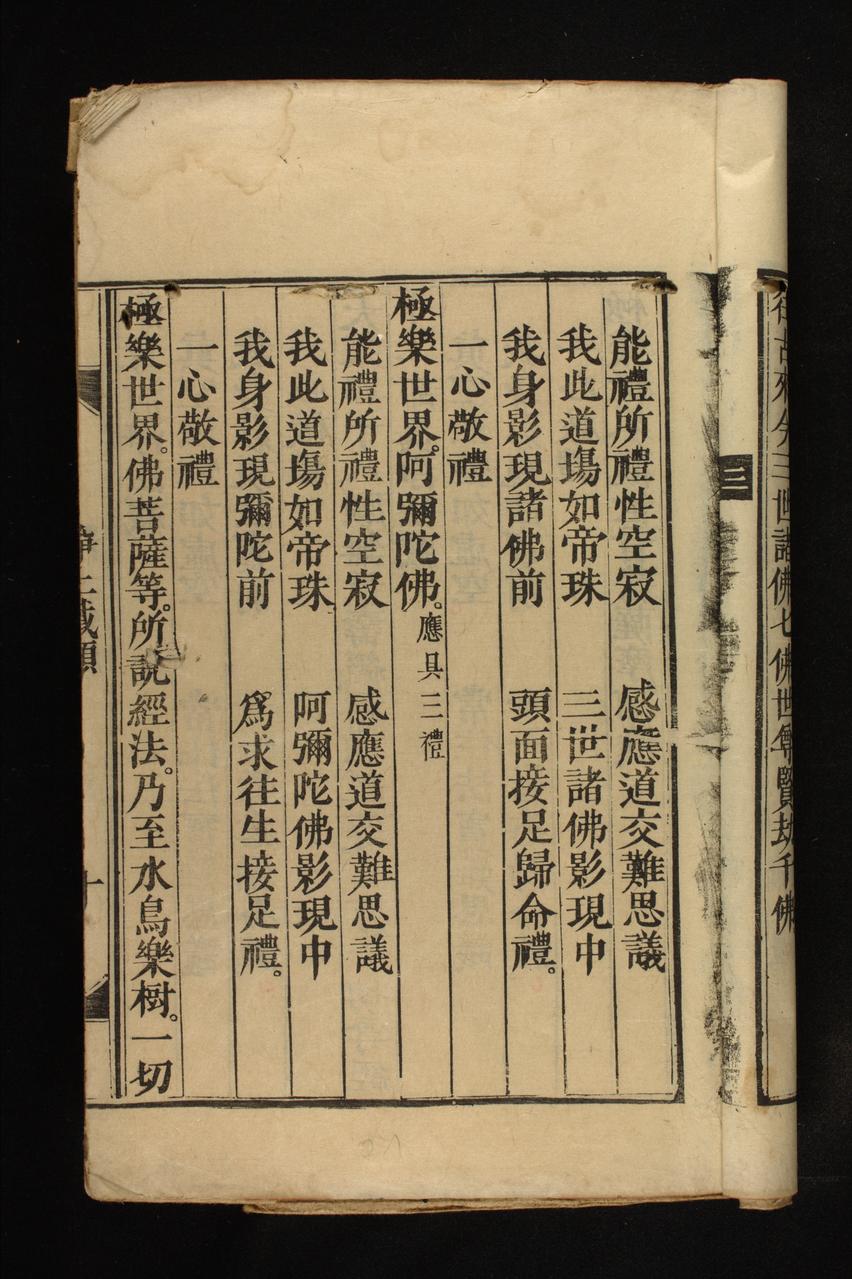 往古來今三世諸佛七佛世尊賢劫千佛
三
能禮所禮性空寂　感應道交難思議
我此道塲如帝珠　三世諸佛影現中
我身影現諸佛前　頭面接足歸命禮。
一心敬禮
極樂世界。阿彌陀佛。應具三禮
能禮所禮性空寂　感應道交難思議
我此道塲如帝珠　阿彌陀佛影現中
我身影現彌陀前　爲求往生接足禮。
一心敬禮
極樂世界。佛菩薩等。所説經法。乃至水鳥樂樹。一切
淨土懺願　十